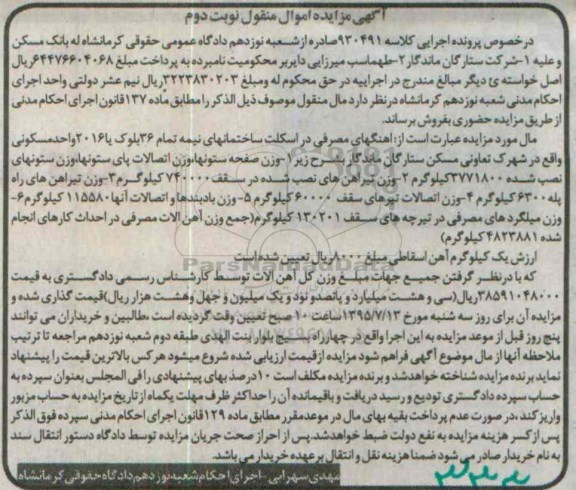 آگهی مزایده اموال منقول نوبت دوم
درخصوص پرونده اجرایی کلاسه ۹۳۰۴۹۱صادره ازشعبه نوزدهم دادگاه عمومی حقوقی کرمانشاه له بانک مسکن
و علیه ۱-شرکت ستارگان ماندگار ۲-طهماسب میرزایی دایربر محکومیت نامبرده به پرداخت مبلغ ۶۴۴۷۶۶۰۴۰۶۸ریال
اصل خواسته ی دیگر مبالغ مندرج در اجراییه در حق محکوم له ومبلغ ۳۲۲۳۸۳۰۲۰۳ریال نیم عشر دولتی واحد اجرای
احکام مدنی شعبه نوزدهم کرمانشاه درنظر دارد مال منقول موصوف ذیل الذکر را مطابق ماده ۱۳۷قانون اجرای احکام مدنی
از طریق مزایده حضوری بفروش برساند.
مال مورد مزایده عبارت است از: اهنگهای مصرفی در اسکلت ساختمانهای نیمه تمام ۳۶بلوک یا۲۰۱۶واحدمسکونی
واقع در شهرک تعاونی مسکن ستارگان ماندگار بشرح زیر ۱-وزن صفحه ستونها،وزن اتصالات پای ستونها،وزن ستونهای
نصب شده ۳۷۷۱۸۰۰کیلوگرم ۲-وزن تیرآهن های نصب شده در سقف۷۴۰۰۰۰کیلوگرم۳-وزن تیرآهن های راه
پله۶۳۰۰کیلوگرم ۴-وزن اتصالات تیرهای سقف ۶۰۰۰۰کیلوگرم ۵- وزن بادبندها و اتصالات آنها۱۱۵۵۸۰کیلوگرم۶-
وزن میلگردهای مصرفی در تیرچه های سقف ۱۳۰۲۰۱کیلوگرم(جمع وزن آهن آلات مصرفی در احداث کارهای انجام
شده ۴۸۲۳۸۸۱کیلوگرم)
ارزش یک کیلوگرم آهن اسقاطی مبلغ ۸۰۰۰ریال تعیین شده است
که با درنظر گرفتن جمیع جهات مبلغ وزن کل آهن آلات توسط کارشناس رسمی دادگستری به قیمت
۳۸۵۹۱۰۴۸۰۰۰ریال(سی و هشت میلیارد و پانصدو نود و یک میلیون و چهل وهشت هزار ریال)قیمت گذاری شده و
مزایده آن برای روز سه شنبه مورخ ۱۳۹۵/۷/۱۳ساعت ۱۰ صبح تعیین وقت گردیده است ،طالبین و خریداران می توانند
پنج روز قبل از موعد مزایده به این اجرا واقع در چهارراه بسیج بلوار بنت الهدی طبقه دوم شعبه نوزدهم مراجعه تا ترتیب
ملاحظه آنها از مال موضوع آگهی فراهم شود مزایده ازقیمت ارزیابی شده شروع میشود هرکس بالاترین قیمت را پیشنهاد
نماید برنده مزایده شناخته خواهدشد و برنده مزایده مکلف است ۱۰درصد بهای پیشنهادی رافی المجلس بعنوان سپرده به
حساب سپرده دادگستری تودیع و رسید دریافت و باقیمانده آن را حداکثر ظرف مهلت یکماه از تاریخ مزایده به حساب مزبور
واریز کند،در صورت عدم پرداخت بقیه بهای مال در موعدمقرر مطابق ماده ۱۲۹قانون اجرای احکام مدنی سپرده فوق الذکر
پس ازکسر هزینه مزایده به نفع دولت ضبط خواهدشد.پس از احراز صحت جریان مزایده توسط دادگاه دستور انتقال سند
به نام خریدار صادر می شود ضمنا هزینه نقل و انتقال برعهده خریدار می باشد.
مهدی سهرابی - اجرای احکام شعبه نوزدهم دادگاه حقوقی کرمانشاه
ParsNamadData